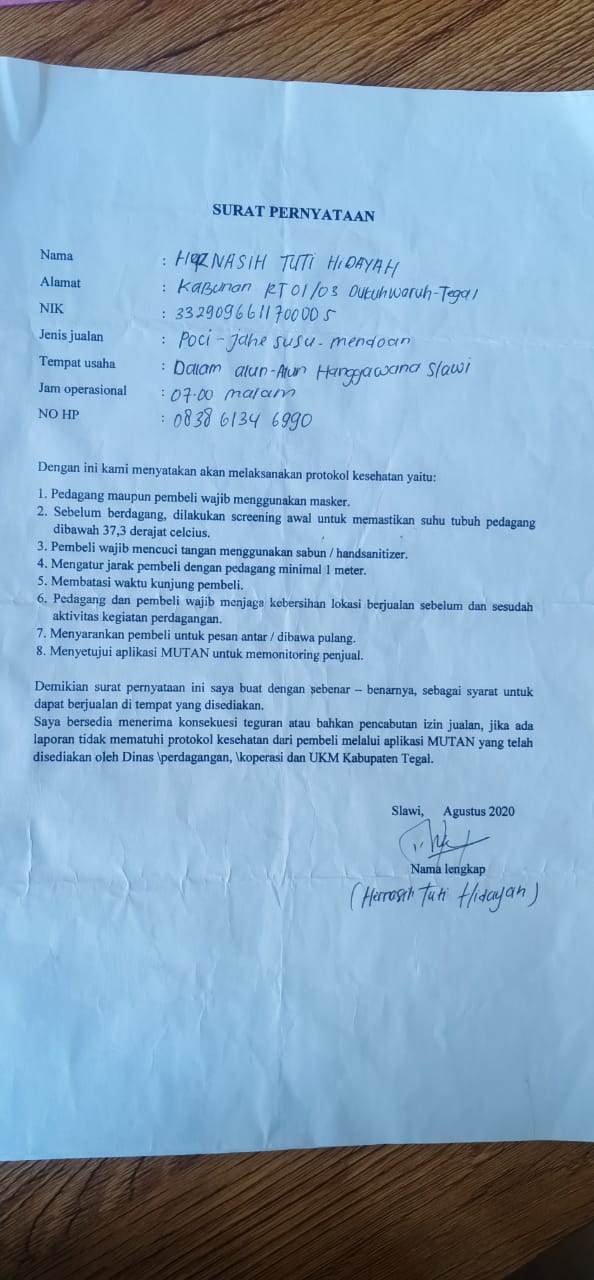 SURAT PERNYATAAN
Nama : HERNASIH TUTI HIDAYAH
Alamat : Kabunan RT 01/03 Dukuhwaruh-Tegal
NIK : 3329096611700005
Jenis jualan : Poci - Jahe susu - mendoan
Tempat usaha : Dalam alun-Alun Hanggawana Slawi
Jam operasional : 07.00 malam
NO HP : 0838 6134 6990
Dengan ini kami menyatakan akan melaksanakan protokol kesehatan yaitu:
1. Pedagang maupun pembeli wajib menggunakan masker.
2. Sebelum berdagang, dilakukan screening awal untuk memastikan suhu tubuh pedagang
dibawah 37,3 derajat celcius.
3. Pembeli wajib mencuci tangan menggunakan sabun / handsanitizer.
4. Mengatur jarak pembeli dengan pedagang minimal 1 meter.
5. Membatasi waktu kunjung pembeli.
6. Pedagang dan pembeli wajib menjaga kebersihan lokasi berjualan sebelum dan sesudah
aktivitas kegiatan perdagangan.
7. Menyarankan pembeli untuk pesan antar / dibawa pulang.
8. Menyetujui aplikasi MUTAN untuk memonitoring penjual.
Demikian surat pernyataan ini saya buat dengan sebenar – benarnya, sebagai syarat untuk
dapat berjualan di tempat yang disediakan.
Saya bersedia menerima konsekuesi teguran atau bahkan pencabutan izin jualan, jika ada
laporan tidak mematuhi protokol kesehatan dari pembeli melalui aplikasi MUTAN yang telah
disediakan oleh Dinas \perdagangan, \koperasi dan UKM Kabupaten Tegal.
Slawi, Agustus 2020
Nama lengkap
(Hernasih Tuti Hidayah)